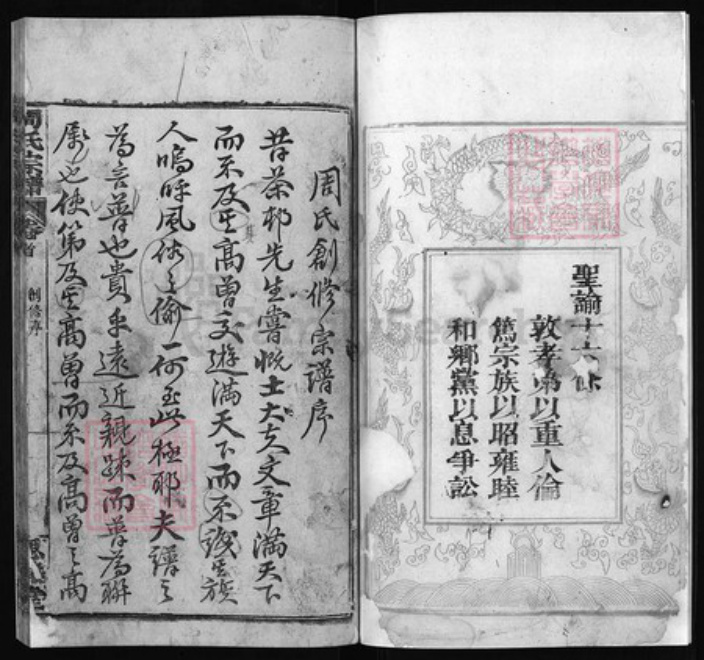 聖諭十六條
敦孝弟以重人倫
篤宗族以昭雍睦
和鄉黨以息爭訟
周氏創修宗譜序
昔茶邨先生嘗慨士大夫文章滿天下
而不及其高曾交遊滿天下而不識其族
人嗚呼風俗之偷一何至此極耶夫譜之
為言普也貴乎遠近親疎而普為聯
屬也使第及其高曾而不及高曾之高
周氏宗譜
卷首
創修序